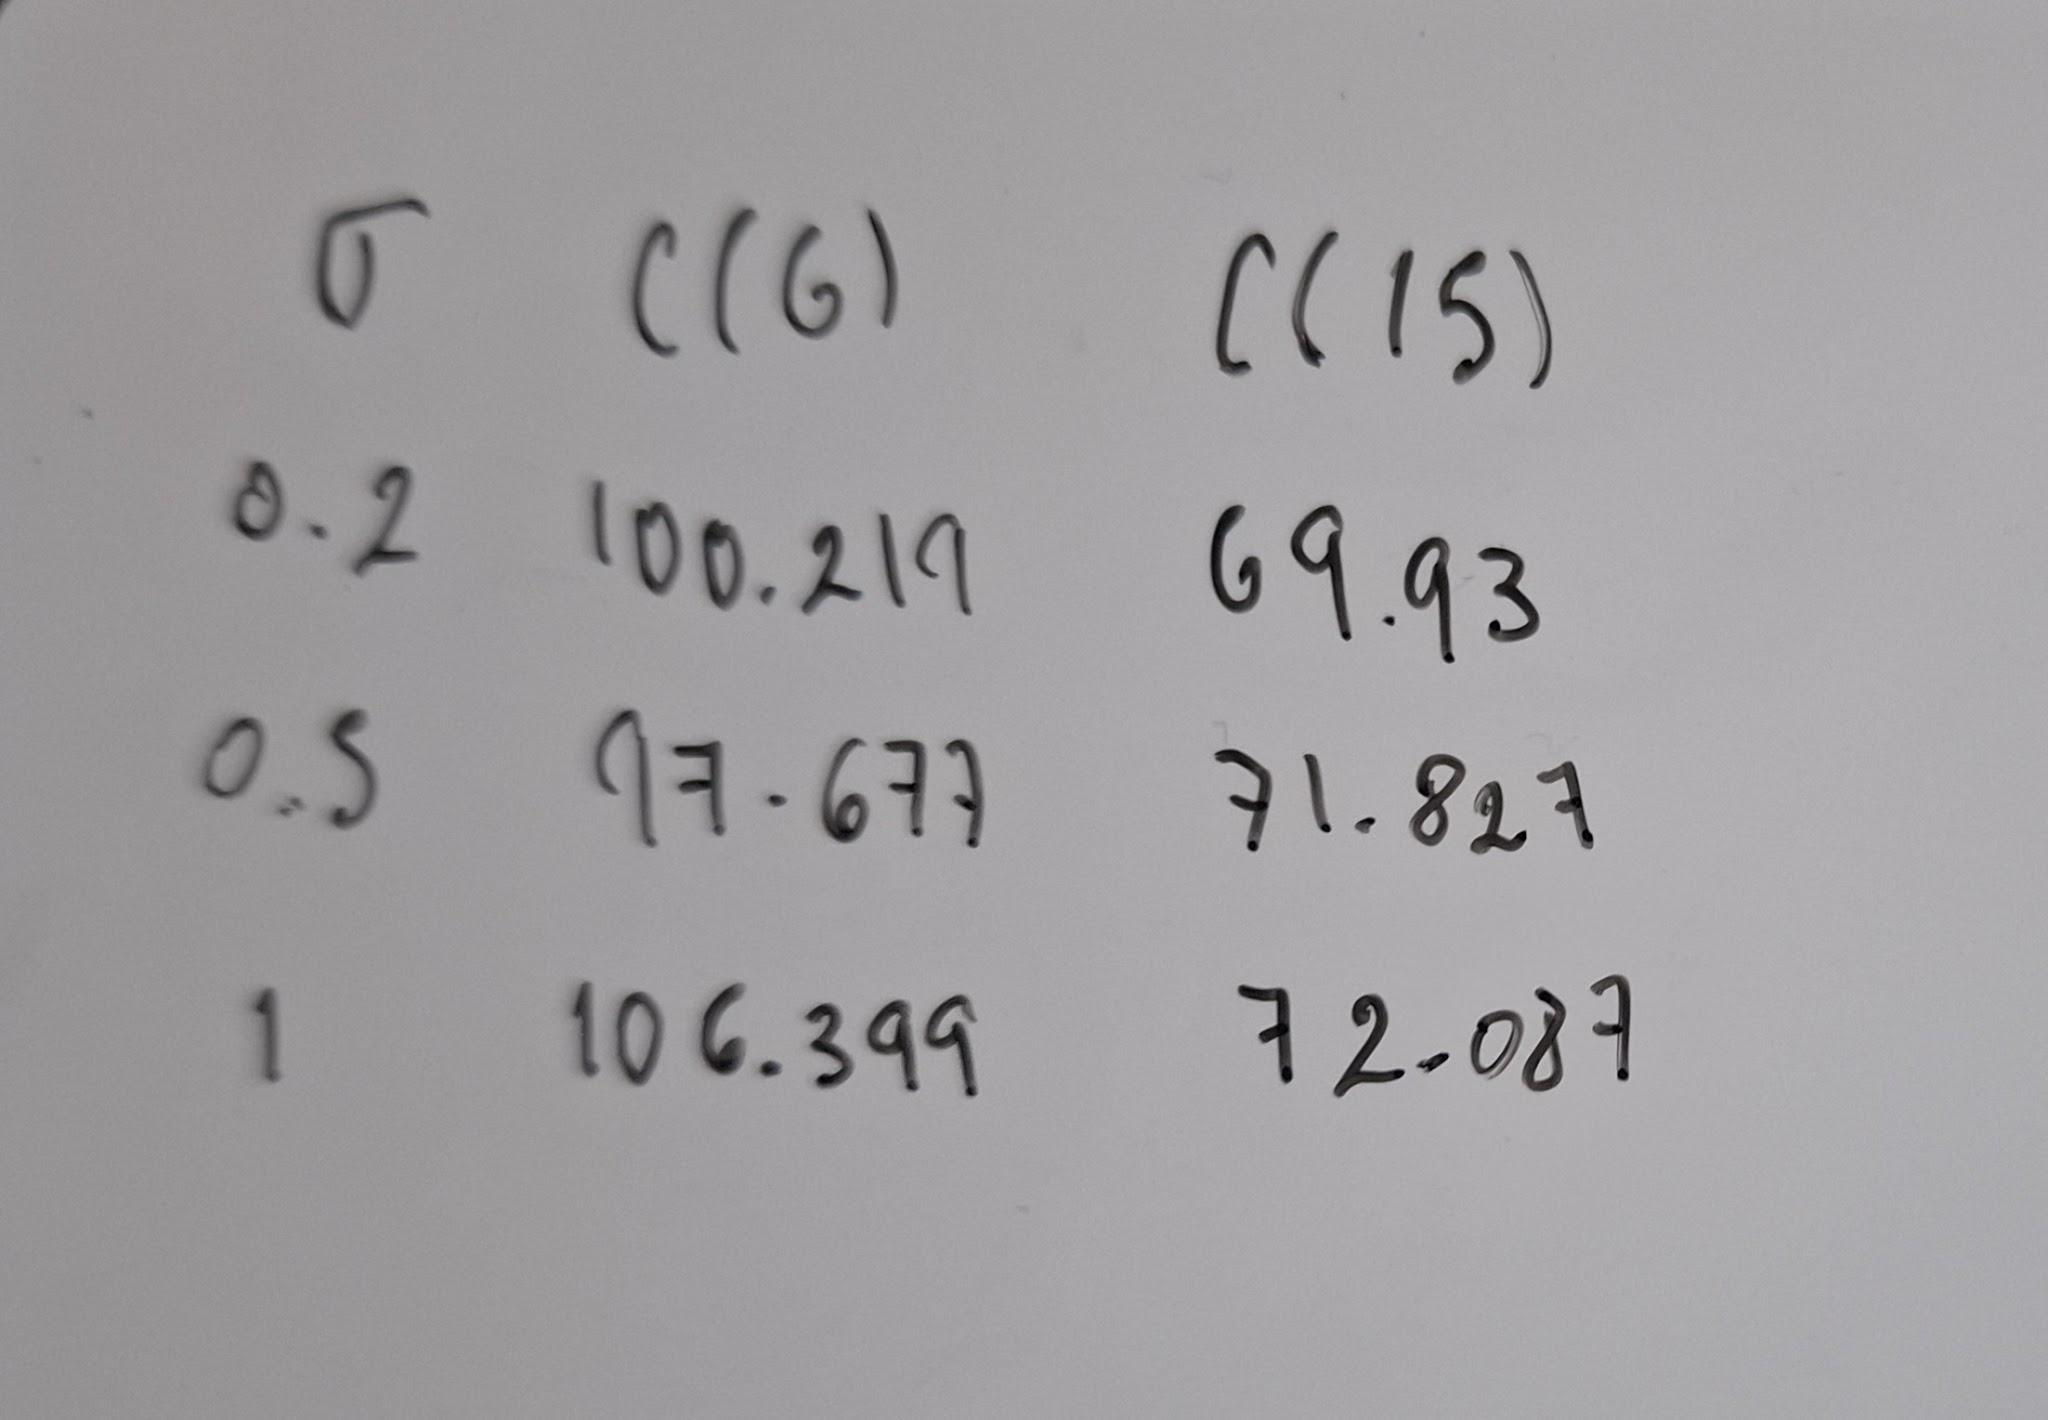 σ C(6) C(15)
0.2 100.219 69.93
0.5 97.677 71.827
1 106.399 72.087